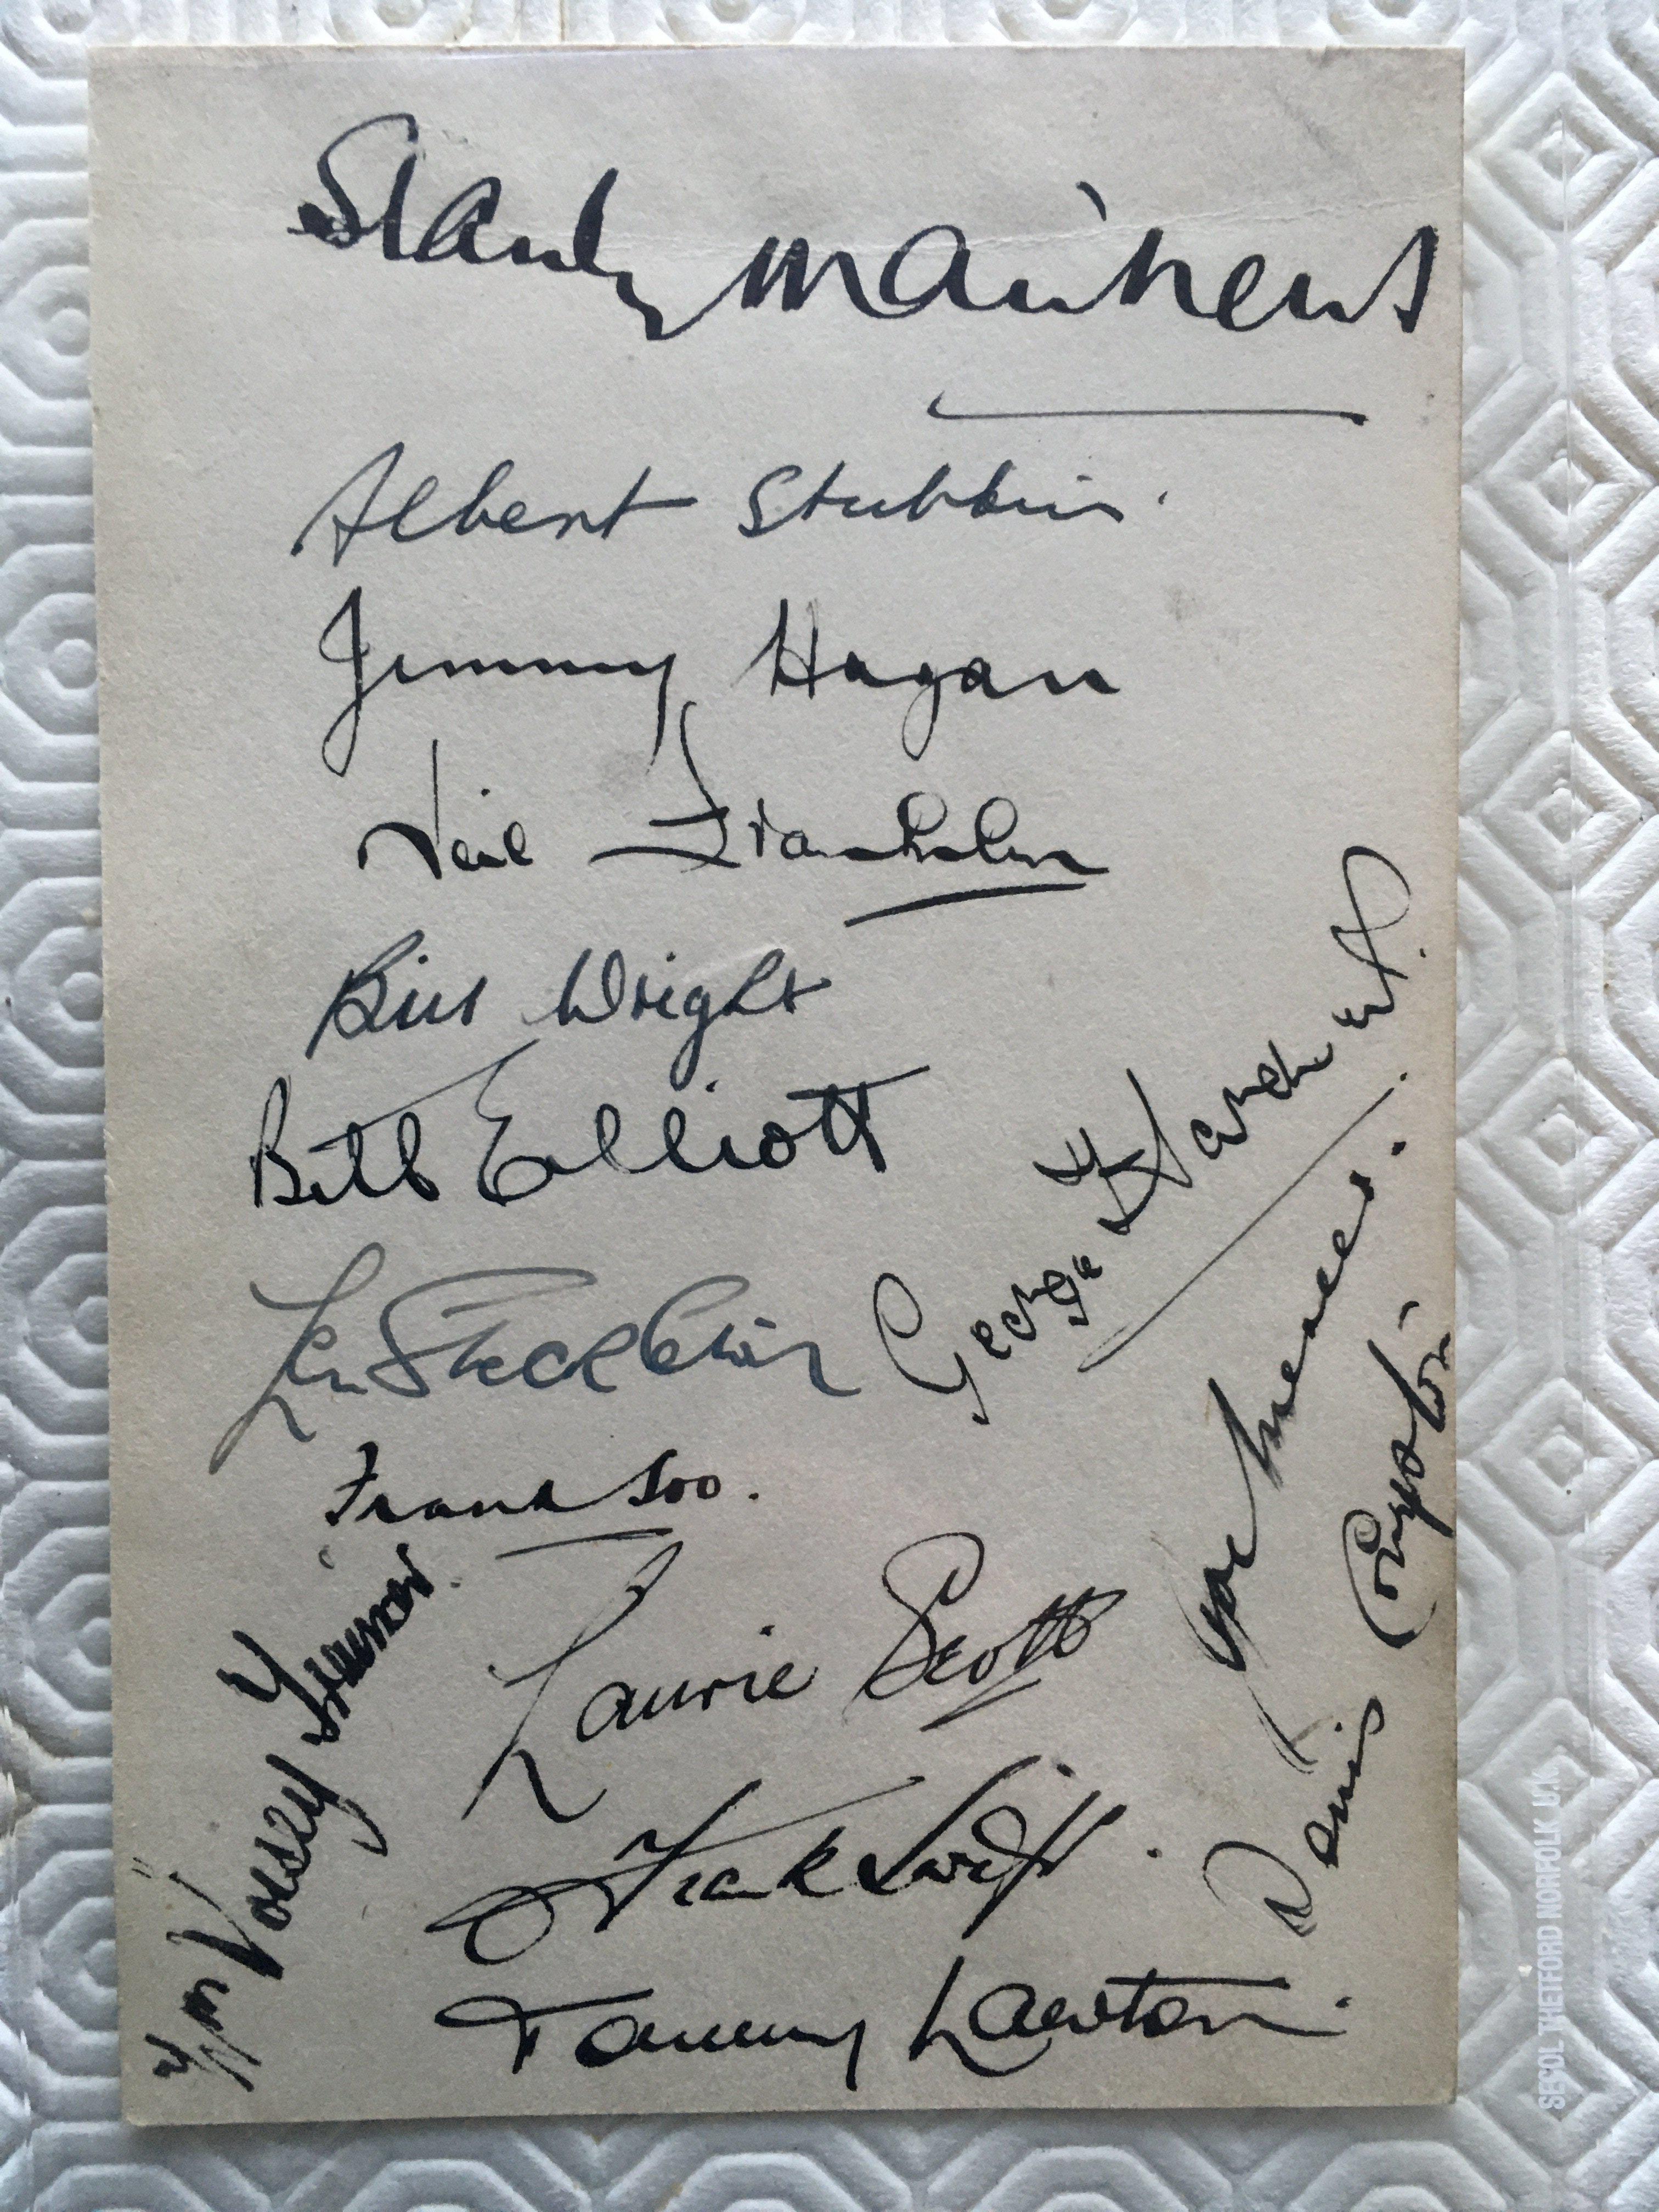 Stanley Matthews
Albert Stubbins.
Jimmy Hagan
Neil Franklin
Billy Wright
Bill Elliott
George Hardwick.
Len Shackleton
Frank Soo.
Joe Mercer.
Denis Compton
Laurie Scott
Frank Swift.
Tommy Lawton.
SECOL THETFORD NORFOLK U.K